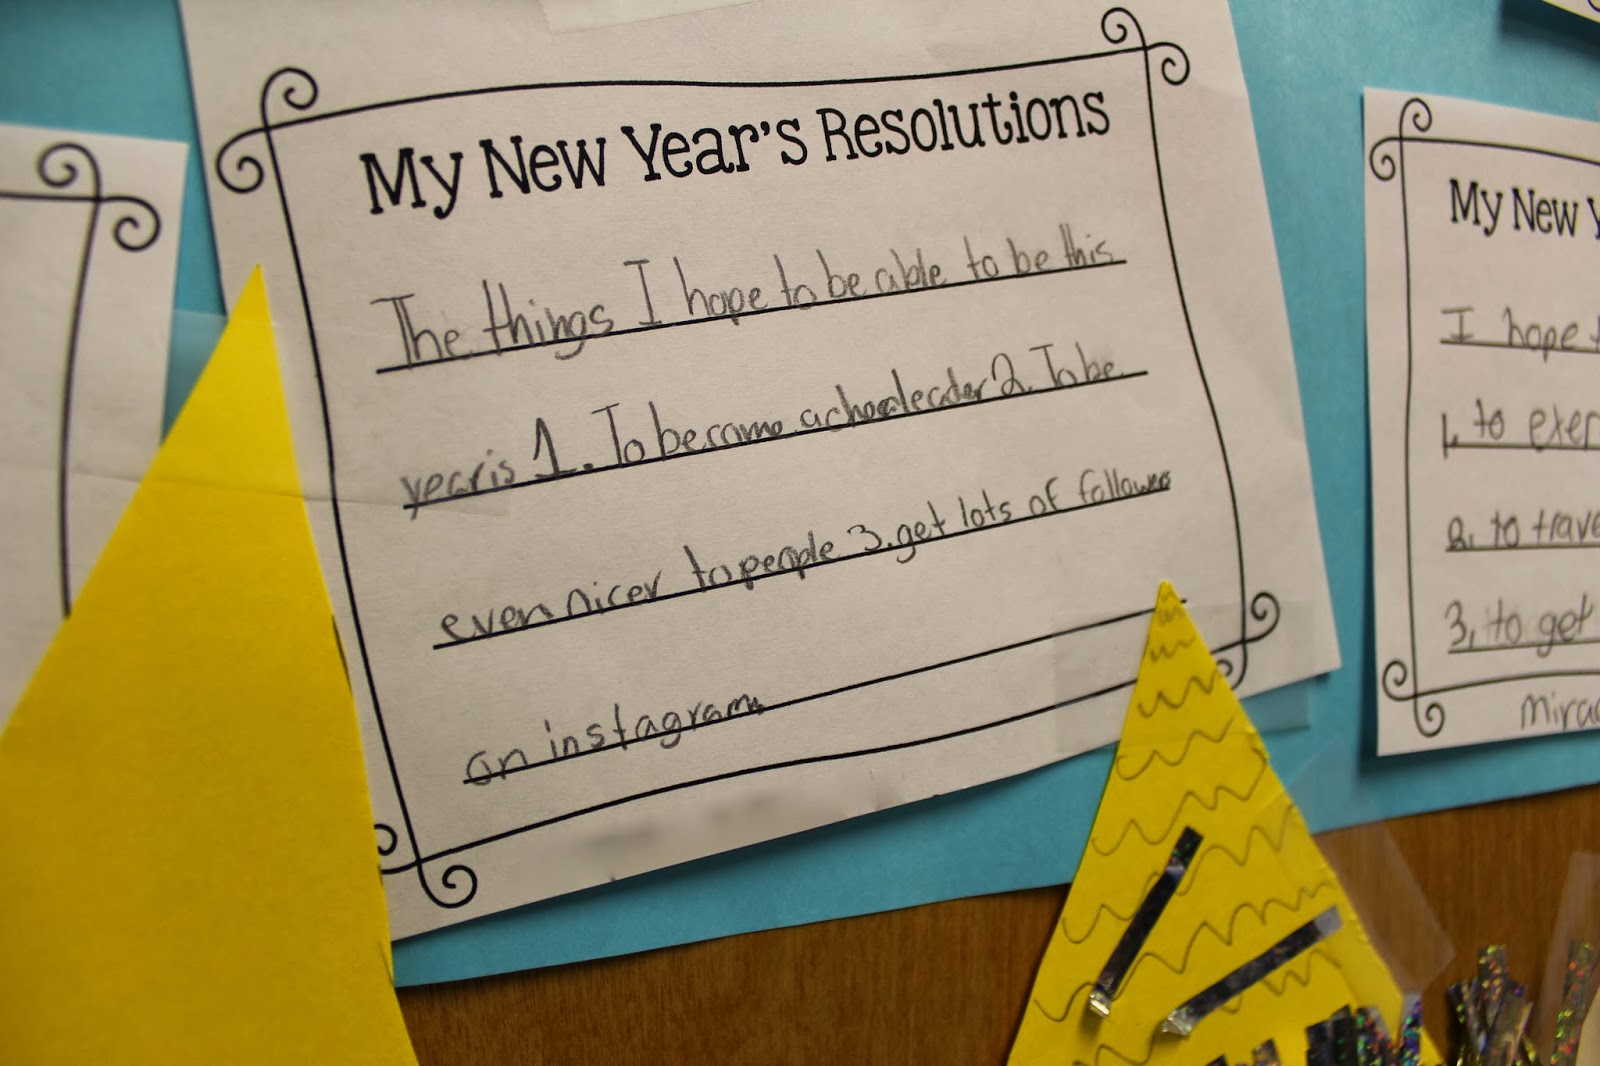 My New Year's Resolutions
The things I hope to be able to be this
year is 1. To become a leader 2. To be
even nicer to people 3. get lots of followers
on instagram
My New
I hope
1. to exer
2. to trave
3. to get
Mirac